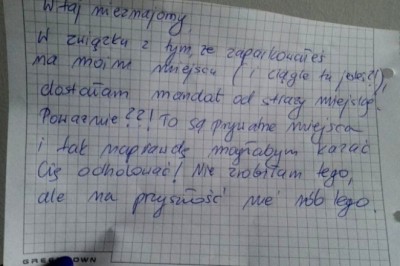 Witaj nieznajomy,
W związku z tym, że zaparkowałeś
na moim miejscu (i ciągle tu jesteś!),
dostałam mandat od straży miejskiej.
Poważnie??! To są prywatne miejsca
i tak naprawdę mogłabym kazać
Cię odholować! Nie zrobiłam tego,
ale na przyszłość nie rób tego.